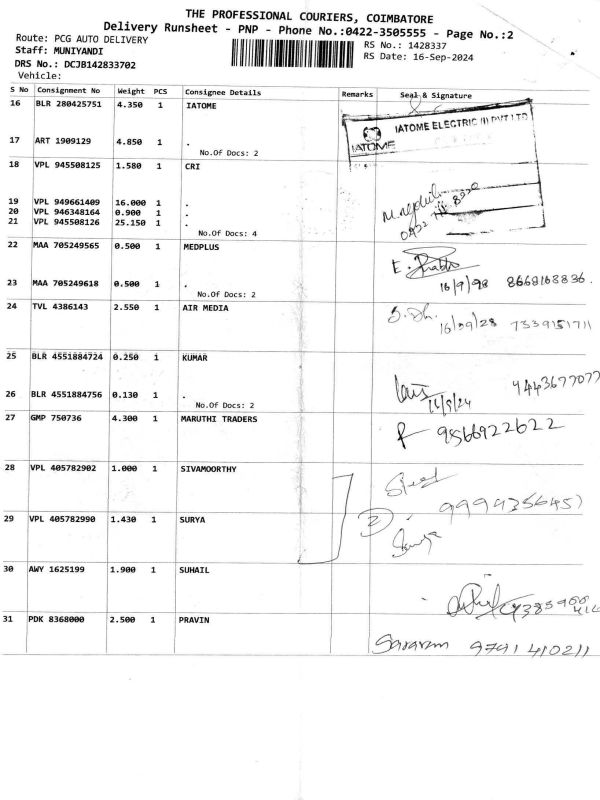 THE PROFESSIONAL COURIERS, COIMBATORE
Delivery Runsheet - PNP - Phone No.:0422-3505555 - Page No.:2
Route: PCG AUTO DELIVERY
RS No.: 1428337
Staff: MUNIYANDI
RS Date: 16-Sep-2024
DRS No.: DCJB142833702
Vehicle:
S No Consignment No Weight PCS Consignee Details Remarks Seal & Signature
16 BLR 280425751 4.350 1 IATOME
IATOME ELECTRIC (I) PVT LTD
IATOME
17 ART 1909129 4.850 1 .
No.Of Docs: 2
18 VPL 945508125 1.580 1 CRI
19 VPL 949661409 16.000 1 .
20 VPL 946348164 0.900 1 .
21 VPL 945508126 25.150 1 .
No.Of Docs: 4
22 MAA 705249565 0.500 1 MEDPLUS
23 MAA 705249618 0.500 1 .
16/9/98 8668168836.
No.Of Docs: 2
24 TVL 4386143 2.550 1 AIR MEDIA
16/09/28 7339151711
25 BLR 4551884724 0.250 1 KUMAR
26 BLR 4551884756 0.130 1 .
9443677077
16/9/24
No.Of Docs: 2
27 GMP 750736 4.300 1 MARUTHI TRADERS
9566922622
28 VPL 405782902 1.000 1 SIVAMOORTHY
29 VPL 405782990 1.430 1 SURYA
2
Surya
30 AWY 1625199 1.900 1 SUHAIL
31 PDK 8368000 2.500 1 PRAVIN
9791410211